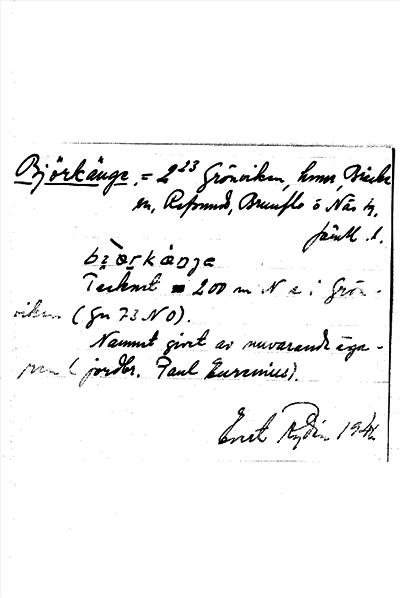 Björkänge, = 2²³ Grönviken, hmn, Backe
en, Refsund, Brunflo o Näs tg,
Jämtl. l.
Tecknat = 200 m N e i Grön-
viken (Gn 73 NO).
Namnet givet av nuvarande äga-
ren (jordbr. Paul Eurenius).
Evert Rydin 1941